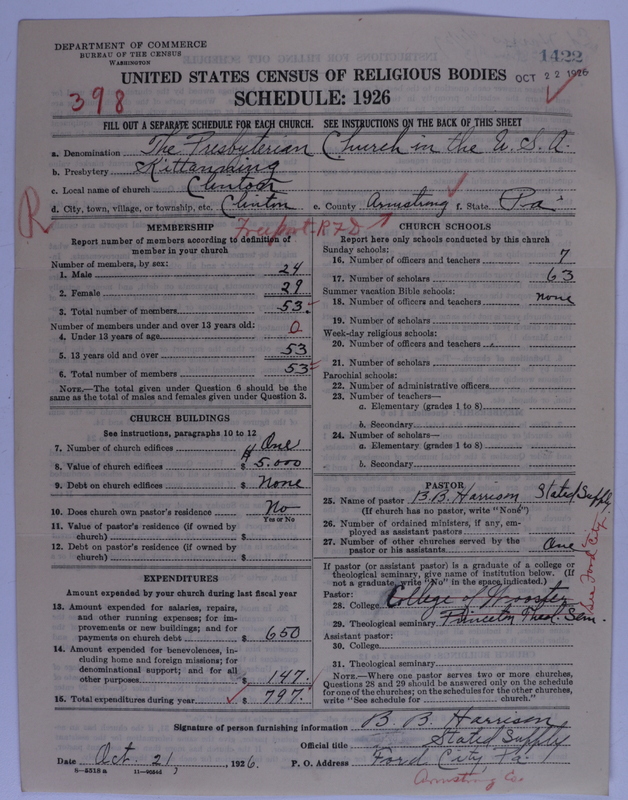 DEPARTMENT OF COMMERCE
BUREAU OF THE CENSUS
WASHINGTON
1422
UNITED STATES CENSUS OF RELIGIOUS BODIES
OCT 22 1926
398
SCHEDULE: 1926
FILL OUT A SEPARATE SCHEDULE FOR EACH CHURCH. SEE INSTRUCTIONS ON THE BACK OF THIS SHEET
a. Denomination The Presbyterian Church in the U. S. A.
b. Presbytery Kittanning
c. Local name of church Clinton
d. City, town, village, or township, etc. Clinton e. County Armstrong f. State Pa
R
Freeport - RFD
MEMBERSHIP
Report number of members according to definition of member in your church
Number of members, by sex:
1. Male 24
2. Female 29
3. Total number of members 53
Number of members under and over 13 years old:
4. Under 13 years of age 0
5. 13 years old and over 53
6. Total number of members 53
NOTE.—The total given under Question 6 should be the
same as the total of males and females given under Question 3.
CHURCH BUILDINGS
See instructions, paragraphs 10 to 12
7. Number of church edifices One
8. Value of church edifices $ 5.000
9. Debt on church edifices $ None
10. Does church own pastor's residence No
Yes or No
11. Value of pastor's residence (if owned by
church) $
12. Debt on pastor's residence (if owned by
church) $
EXPENDITURES
Amount expended by your church during last fiscal year
13. Amount expended for salaries, repairs,
and other running expenses; for im-
provements or new buildings; and for
payments on church debt $ 650
14. Amount expended for benevolences, in-
cluding home and foreign missions; for
denominational support; and for all
other purposes $ 147.
15. Total expenditures during year $ 797.
CHURCH SCHOOLS
Report here only schools conducted by this church
Sunday schools:
16. Number of officers and teachers 7
17. Number of scholars 63
Summer vacation Bible schools:
18. Number of officers and teachers none
19. Number of scholars
Week-day religious schools:
20. Number of officers and teachers
21. Number of scholars
Parochial schools:
22. Number of administrative officers
23. Number of teachers—
a. Elementary (grades 1 to 8)
b. Secondary
24. Number of scholars—
a. Elementary (grades 1 to 8)
b. Secondary
PASTOR
25. Name of pastor B. B. Harrison Stated Supply
(If church has no pastor, write "None")
26. Number of ordained ministers, if any, em-
ployed as assistant pastors
27. Number of other churches served by the
pastor or his assistants One
See Ford City.
If pastor (or assistant pastor) is a graduate of a college or
theological seminary, give name of institution below. (If
not a graduate, write "No" in the space indicated.)
Pastor:
28. College College of Wooster
29. Theological seminary Princeton Theol. Sem.
Assistant pastor:
30. College
31. Theological seminary
NOTE.—Where one pastor serves two or more churches,
Questions 28 and 29 should be answered only on the schedule
for one of the churches; on the schedules for the other churches,
write "See schedule for church."
Signature of person furnishing information B. B. Harrison
Official title Stated Supply
Date Oct. 21, 1926. P. O. Address Ford City Pa.
Armstrong Co.